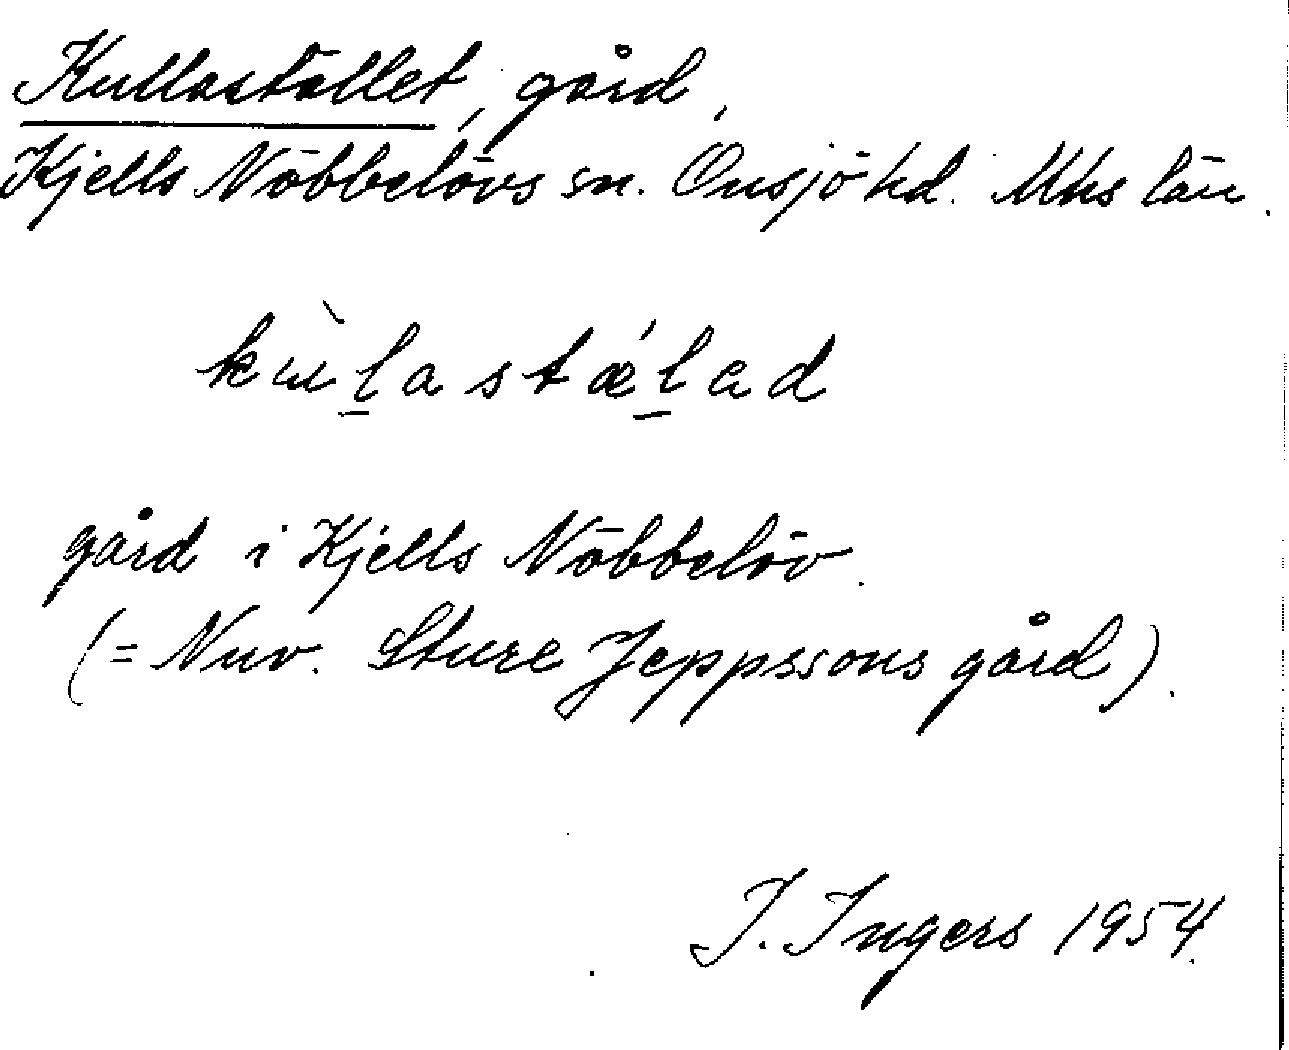 Kullastället, gård,
Kjells Nöbbelövs sn. Onsjö hd. Mhs län.
kùl̠astǽl̠ad
gård i Kjells Nöbbelöv.
(= Nuv. Sture Jeppssons gård).
I. Ingers 1954.